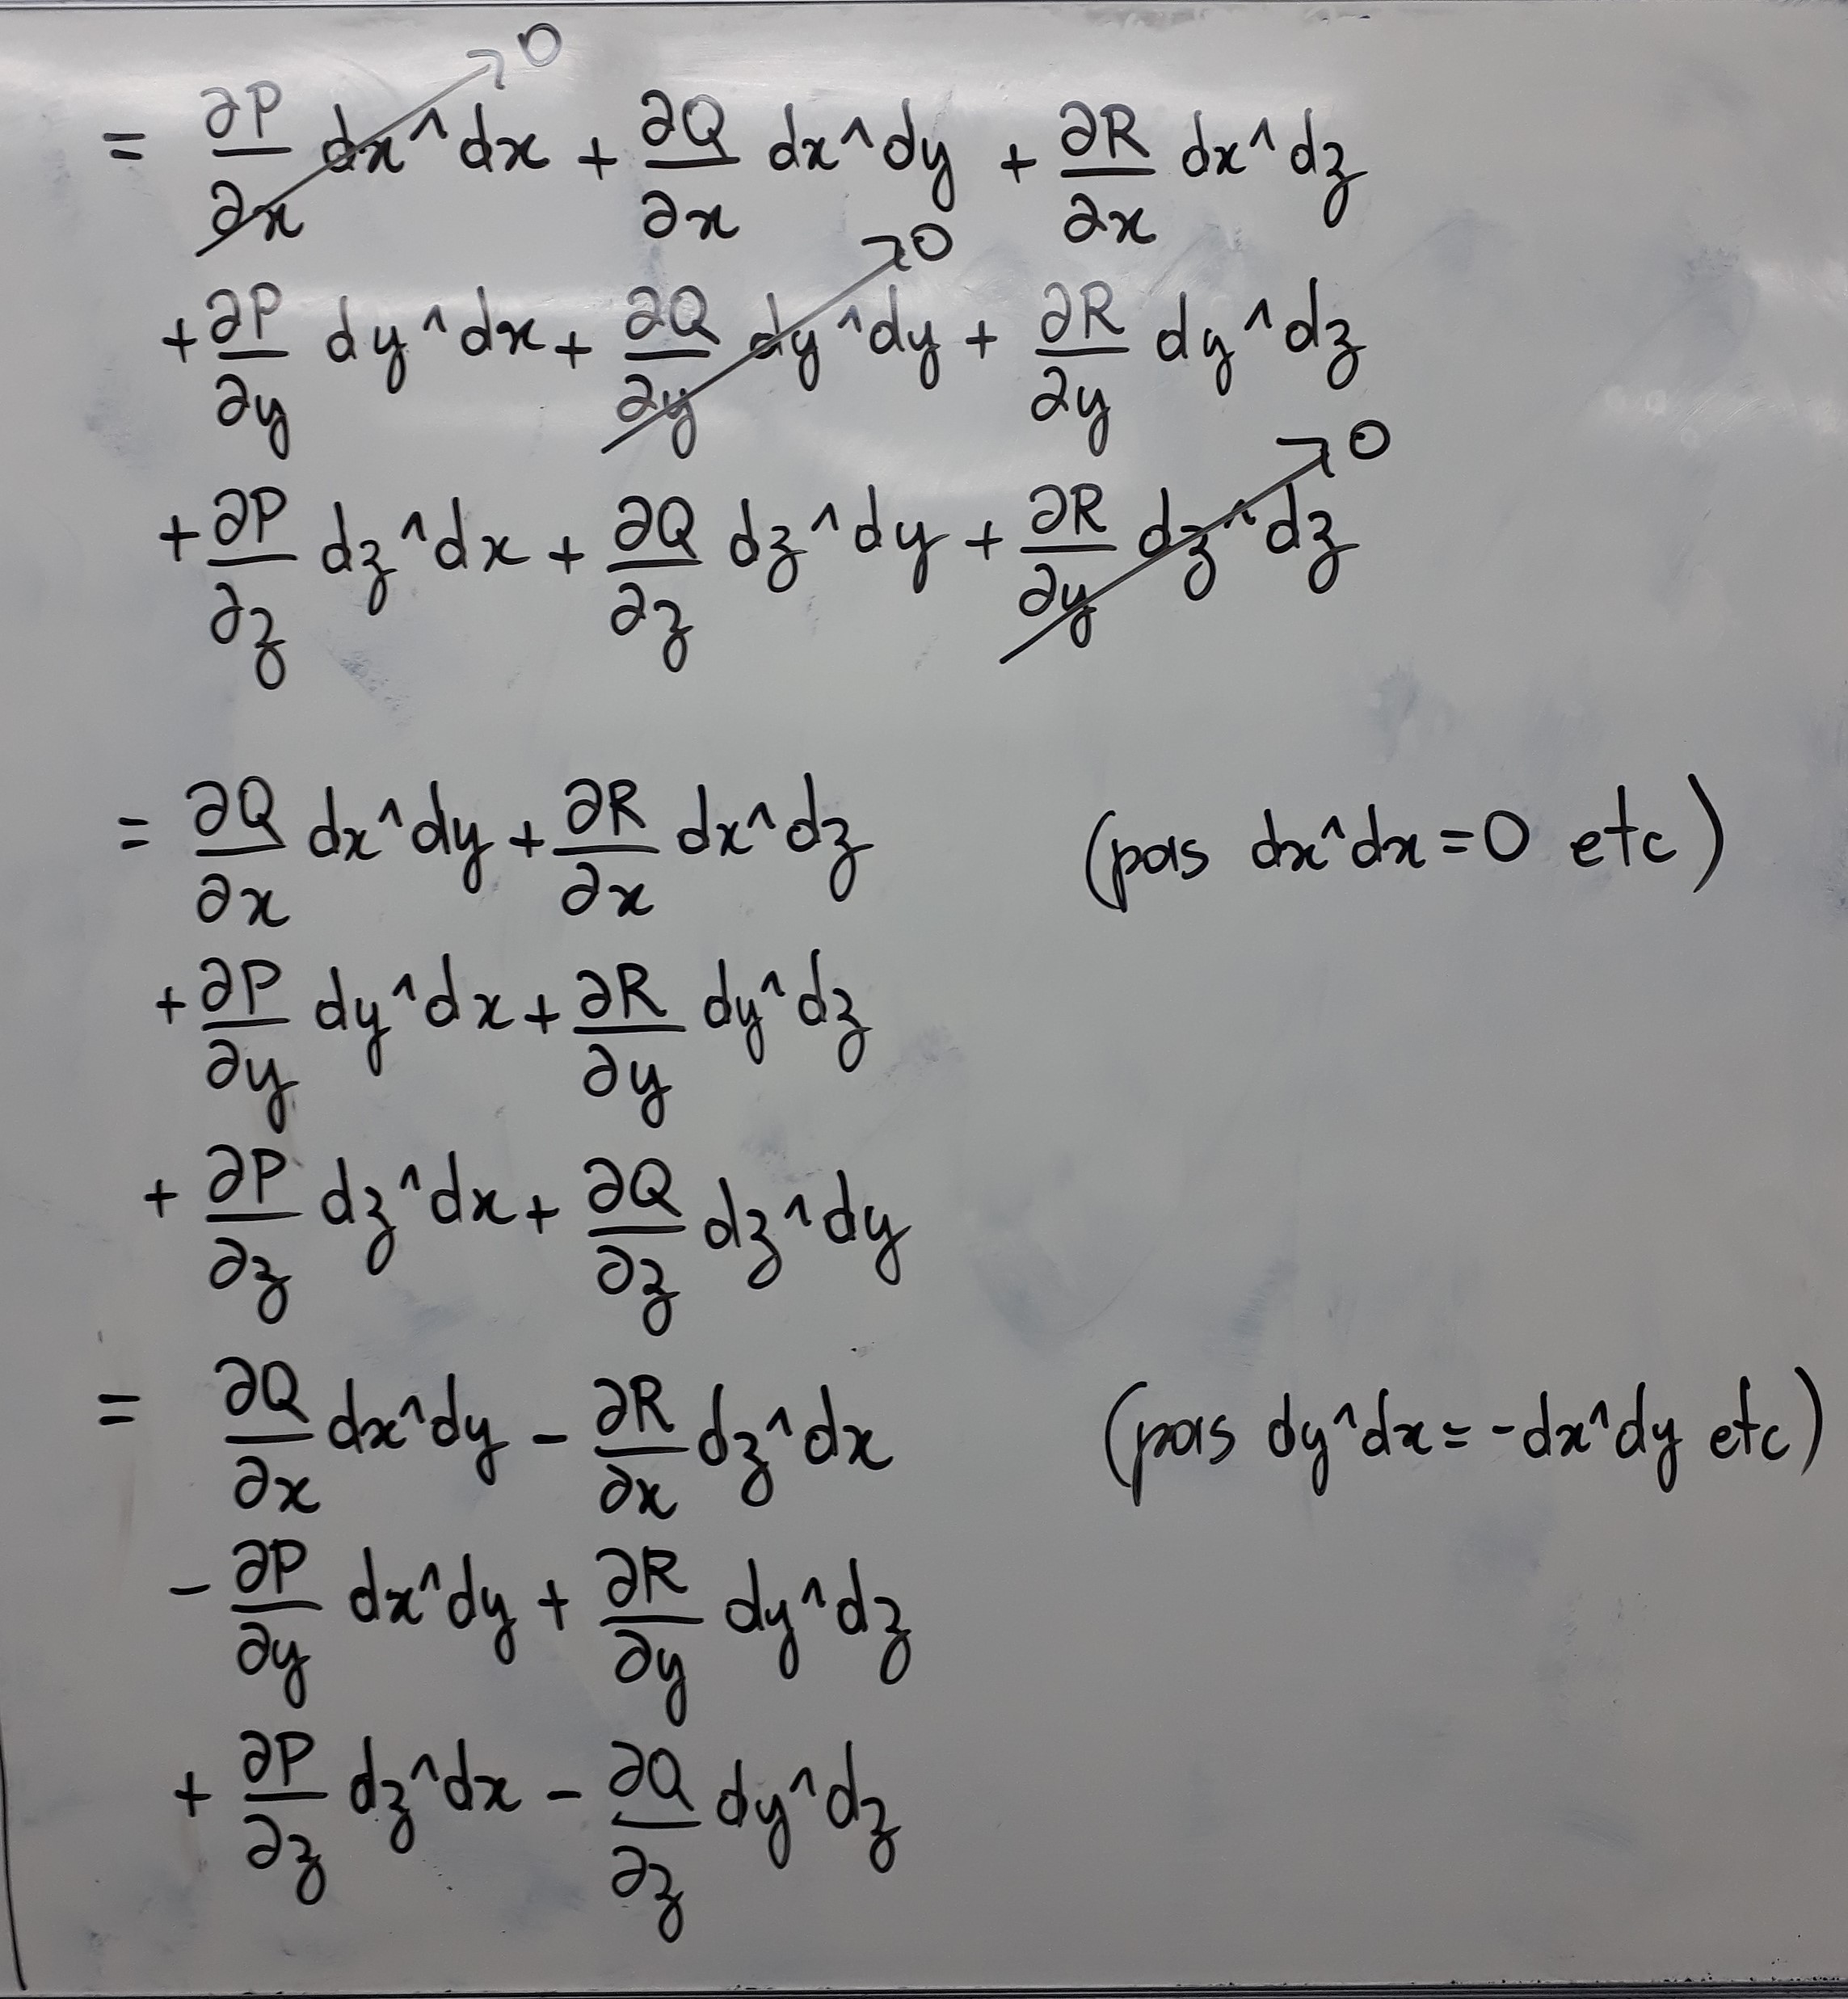 = ∂P/∂x dx^dx → 0 + ∂Q/∂x dx^dy + ∂R/∂x dx^dz
+ ∂P/∂y dy^dx + ∂Q/∂y dy^dy → 0 + ∂R/∂y dy^dz
+ ∂P/∂z dz^dx + ∂Q/∂z dz^dy + ∂R/∂y dz^dz → 0
= ∂Q/∂x dx^dy + ∂R/∂x dx^dz (pois dx^dx = 0 etc)
+ ∂P/∂y dy^dx + ∂R/∂y dy^dz
+ ∂P/∂z dz^dx + ∂Q/∂z dz^dy
= ∂Q/∂x dx^dy - ∂R/∂x dz^dx (pois dy^dx = -dx^dy etc)
- ∂P/∂y dx^dy + ∂R/∂y dy^dz
+ ∂P/∂z dz^dx - ∂Q/∂z dy^dz